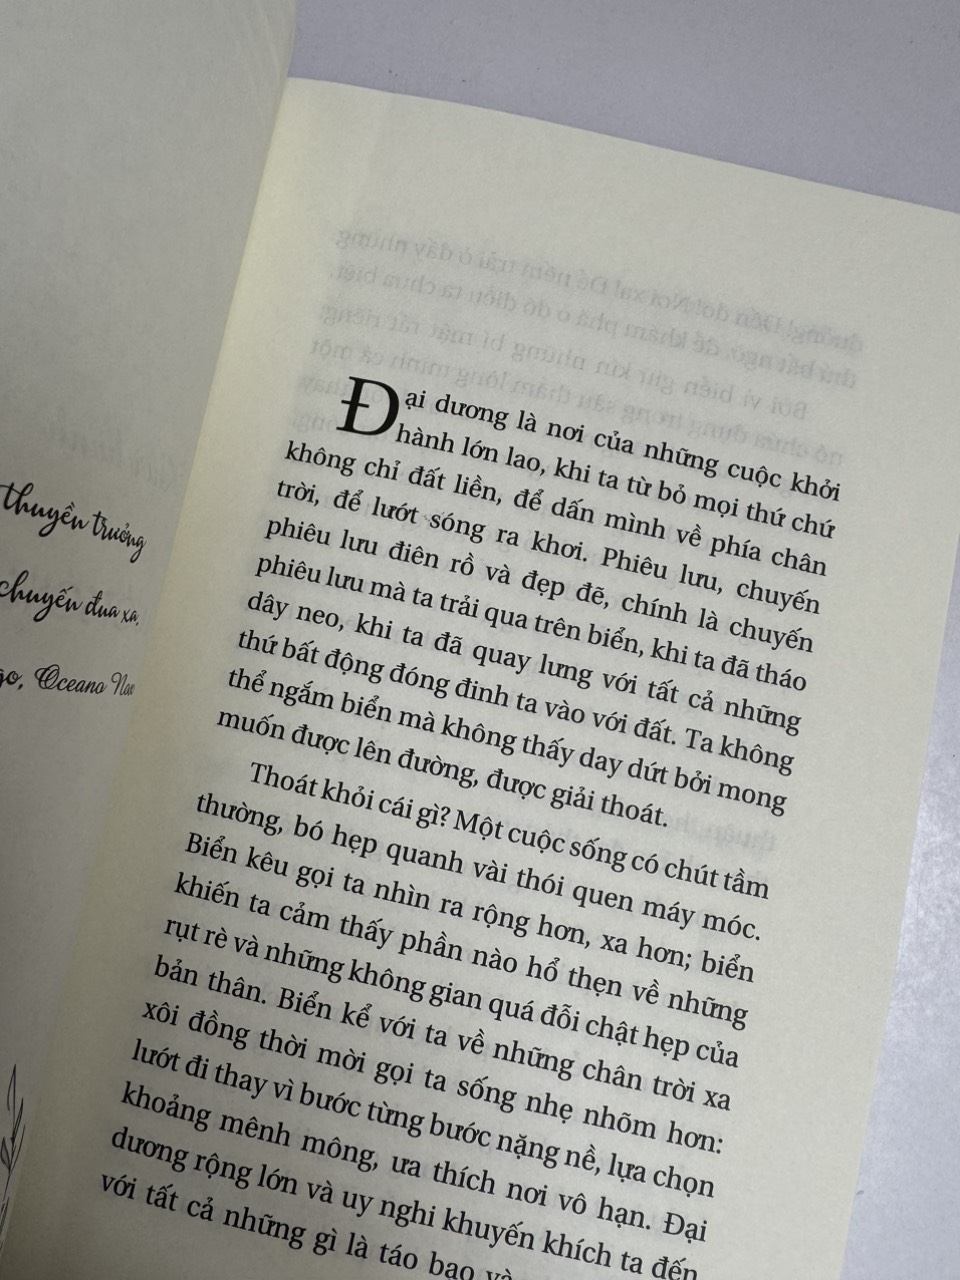 thuyền trưởng
chuyến đua xa,
go, Oceano Nox
Đại dương là nơi của những cuộc khởi
hành lớn lao, khi ta từ bỏ mọi thứ chứ
không chỉ đất liền, để dấn mình về phía chân
trời, để lướt sóng ra khơi. Phiêu lưu, chuyến
phiêu lưu điên rồ và đẹp đẽ, chính là chuyến
phiêu lưu mà ta trải qua trên biển, khi ta đã tháo
dây neo, khi ta đã quay lưng với tất cả những
thứ bất động đóng đinh ta vào với đất. Ta không
thể ngắm biển mà không thấy day dứt bởi mong
muốn được lên đường, được giải thoát.
Thoát khỏi cái gì? Một cuộc sống có chút tầm
thường, bó hẹp quanh vài thói quen máy móc.
Biển kêu gọi ta nhìn ra rộng hơn, xa hơn; biển
khiến ta cảm thấy phần nào hổ thẹn về những
rụt rè và những không gian quá đỗi chật hẹp của
bản thân. Biển kể với ta về những chân trời xa
xôi đồng thời mời gọi ta sống nhẹ nhõm hơn:
lướt đi thay vì bước từng bước nặng nề, lựa chọn
khoảng mênh mông, ưa thích nơi vô hạn. Đại
dương rộng lớn và uy nghi khuyến khích ta đến
với tất cả những gì là táo bạo và